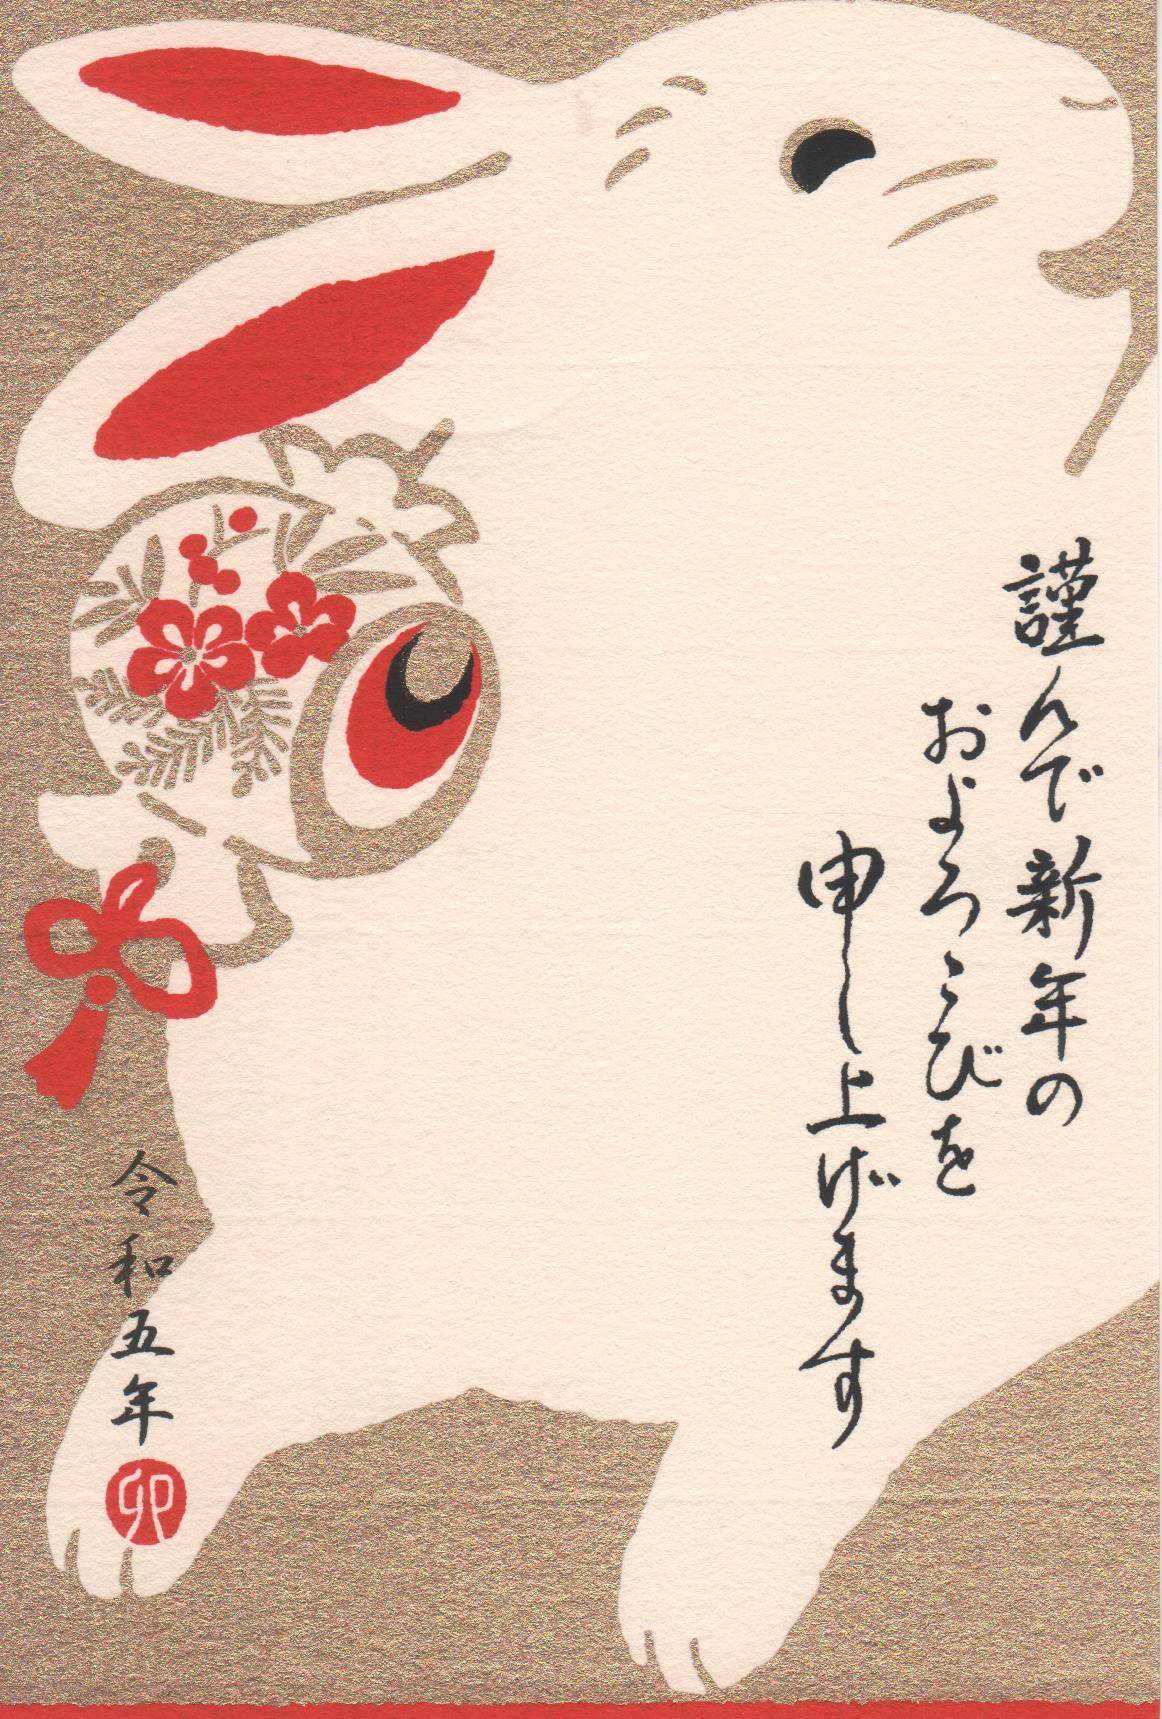 謹んで新年の
およろこびを
申し上げます
令和五年
卯